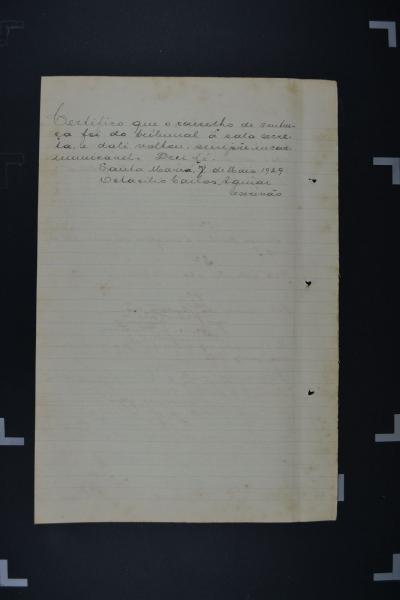 Certifico que o conselho de senten-
ça foi do tribunal á sala secre-
ta, e dali voltou, sempre incom-
municavel. Dou fé.
Santa Maria, 7 de Maio 1929
Octacilio Carlos Aguiar
escrivão